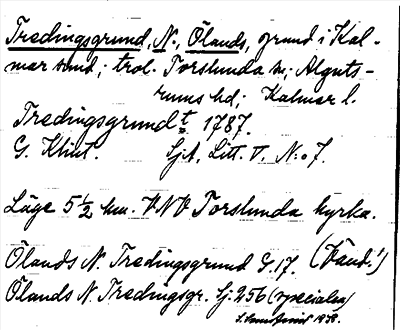 Tredingsgrund, N., Ölands, grund i Kal-
mar sund; trol. Torslunda sn; Alguts-
rums hd; Kalmar l.
Tredingsgrundt 1787.
G. Klint. Sjk, Litt. V. N:o 7.
Läge 5 1/2 km. VNV Torslunda kyrka.
Ölands N. Tredingsgrund G. 17.
Ölands N. Tredingsgr. Sj: 256 (specialen)
1938.